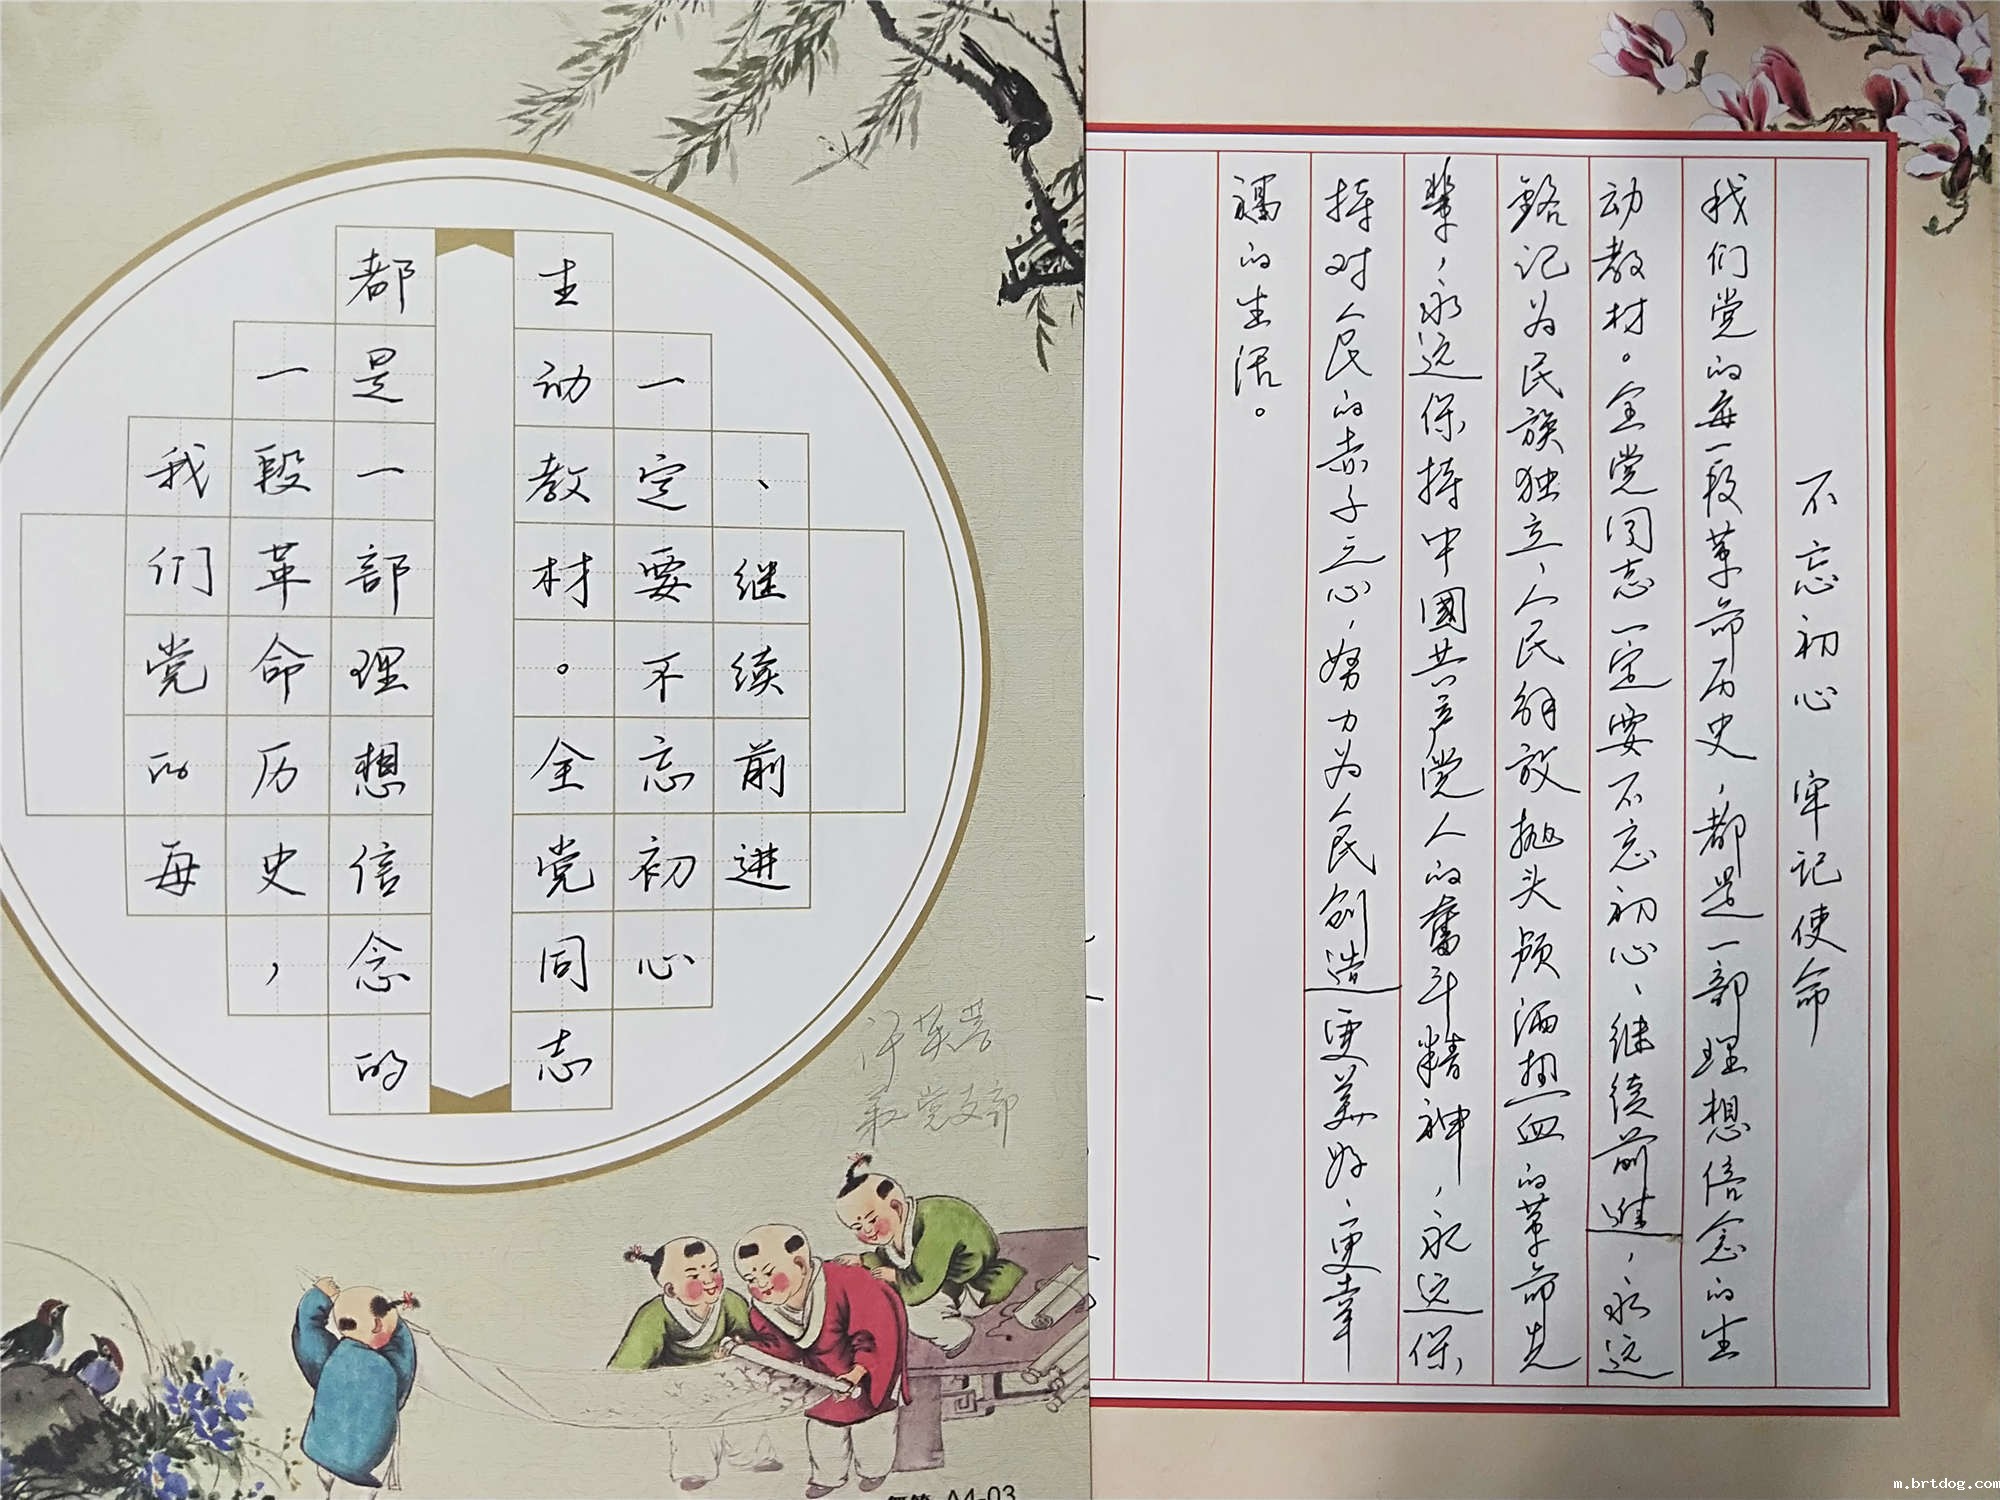 我们党的每
一段革命历史，
都是一部理想信念的
生动教材。全党同志
一定要不忘初心
、继续前进
许英
第二党支部
A4-03
不忘初心 牢记使命
我们党的每一段革命历史，都是一部理想信念的生
动教材。全党同志一定要不忘初心、继续前进，永远
铭记为民族独立、人民解放抛头颅洒热血的革命先
辈，永远保持中國共产党人的奮斗精神，永远保
持对人民的赤子之心，努力为人民创造更美好、更幸
福的生活。
m.brtdog.com